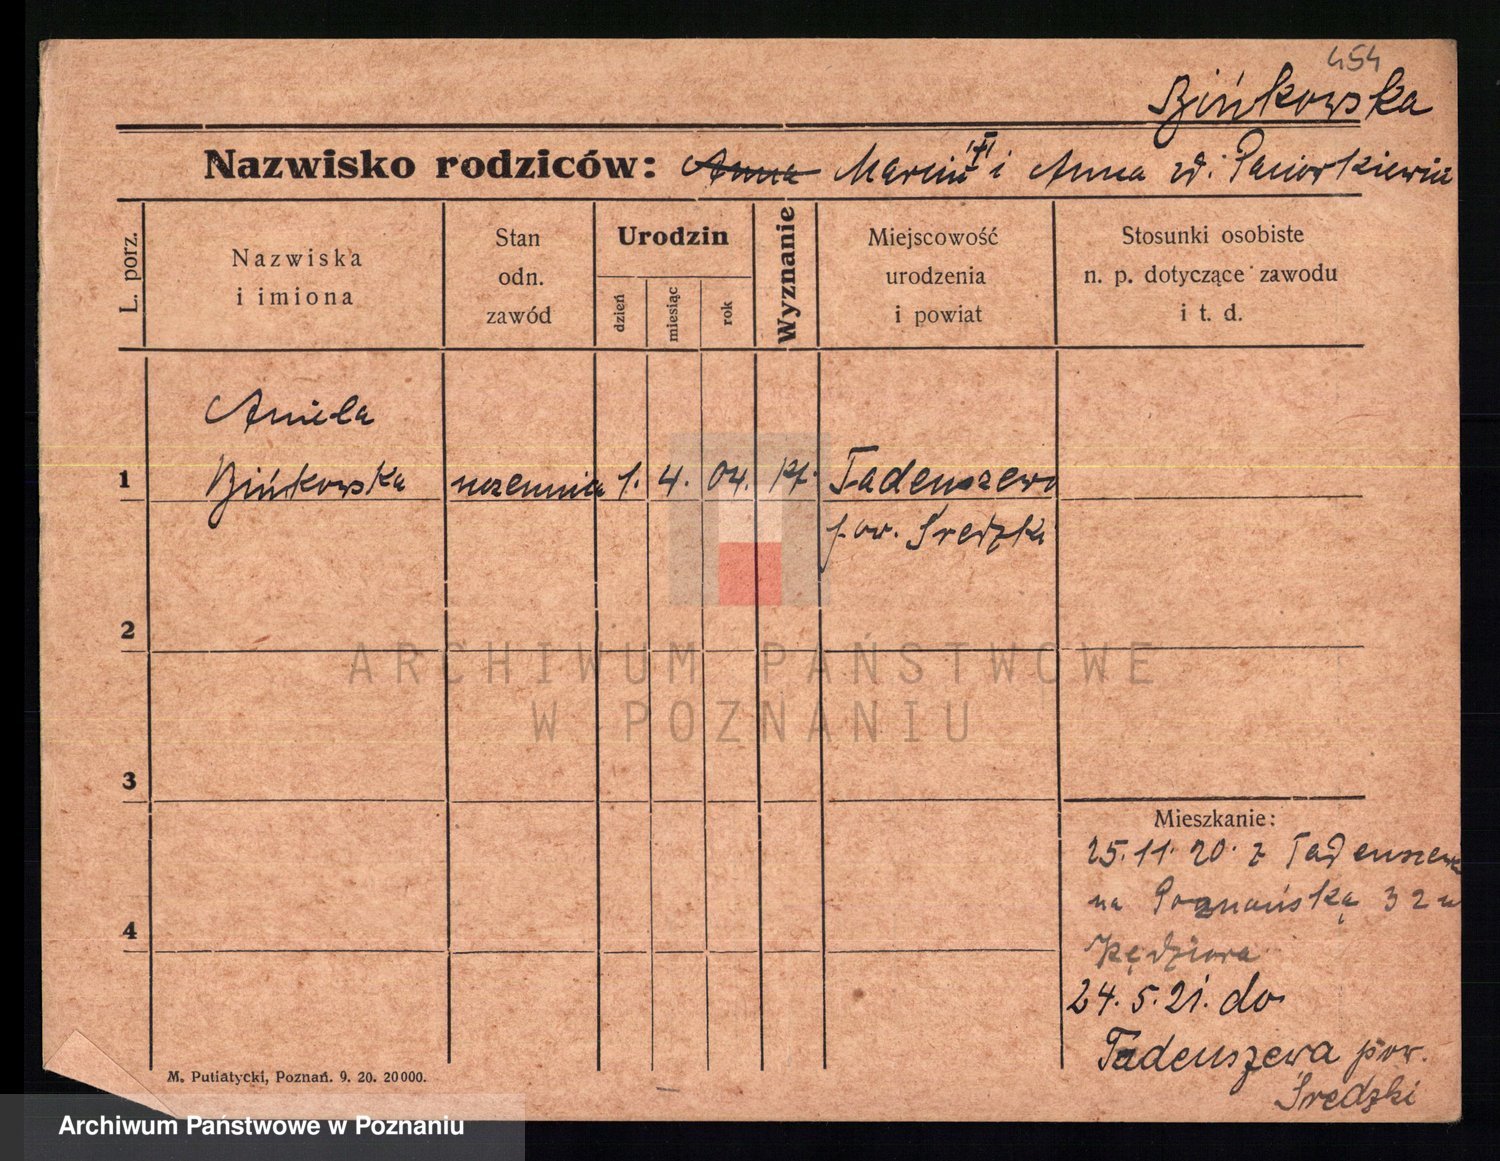 454
Bińkowska
Nazwisko rodziców: Anna Marcin i Anna zd. Paciorkiewicz
L. porz.
Nazwiska
i imiona
Stan
odn.
zawód
Urodzin
dzień
miesiąc
rok
Wyznanie
Miejscowość
urodzenia
i powiat
Stosunki osobiste
n. p. dotyczące zawodu
i t. d.
Aniela
1 Bińkowska uczennica 1. 4. 04. kt. Tadeuszewo
pow. Średzki
2
3
4
Mieszkanie:
25.11.20. z Tadeuszewa
na Poznańską 32 u
Kędziora
24.5.21. do
Tadeuszewa pow.
Średzki
M. Putiatycki, Poznań. 9. 20. 20000.
ARCHIWUM PAŃSTWOWE
W POZNANIU
Archiwum Państwowe w Poznaniu